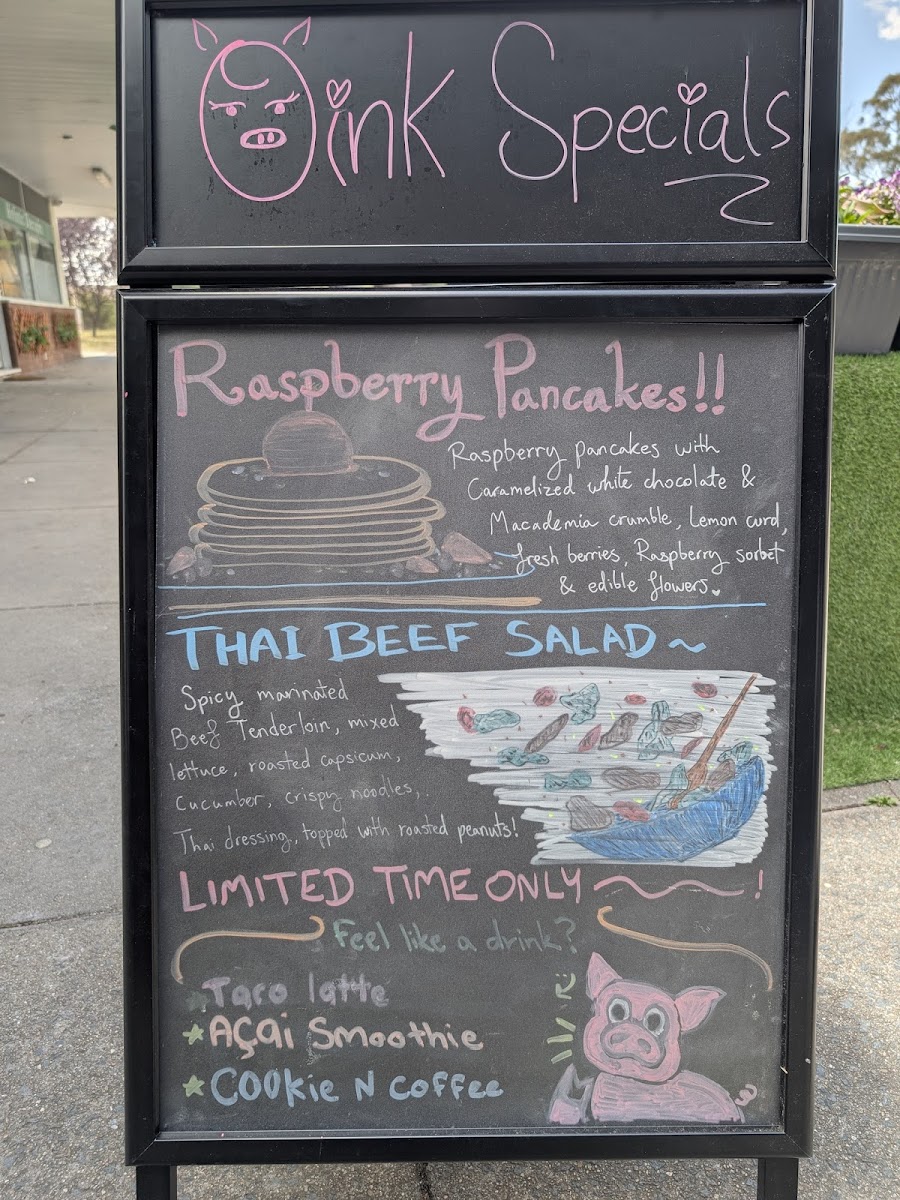 Oink Specials
Raspberry Pancakes!!
Raspberry pancakes with
Caramelized white chocolate &
Macademia crumble, Lemon curd,
fresh berries, Raspberry sorbet
& edible flowers
THAI BEEF SALAD ~
Spicy marinated
Beef Tenderloin, mixed
lettuce, roasted capsicum,
Cucumber, crispy noodles,
Thai dressing, topped with roasted peanuts!
LIMITED TIME ONLY ~ !
Feel like a drink?
Taro latte
AÇai Smoothie
COOkie N coffee